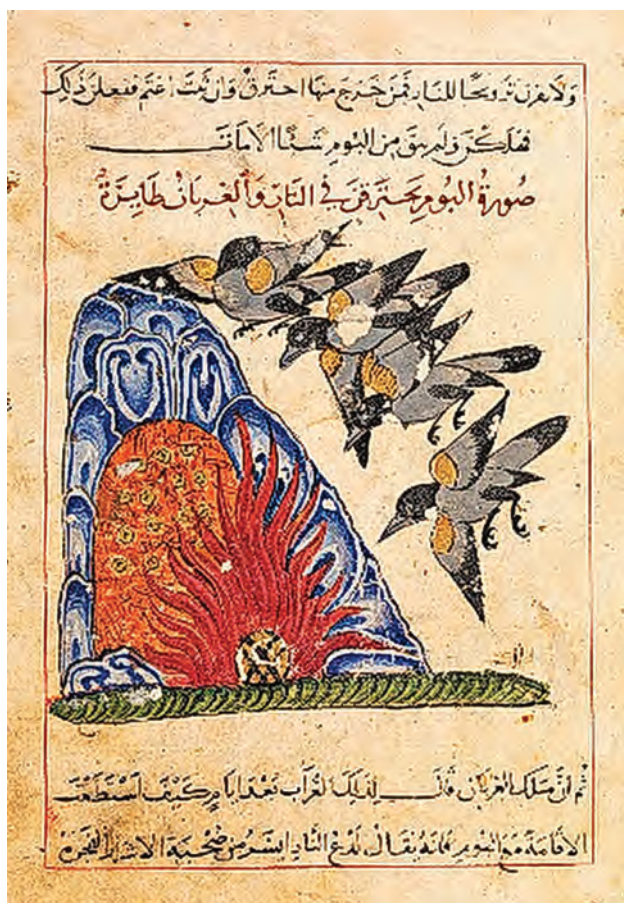 ولا تفرن ترويحا للنار فمن خرج منها احترق وان ثبت اغتم ففعلن ذلك
فهلكن ولم يبق من البوم شيئا الا مات
صورة البوم يحترقن في النار والغربان طايرة
ثم ان ملك الغربان قال لذلك الغراب بعد ايام كيف استطعت
الاقامة مع البوم فانه يقال لذع النار ايسر من صحبة الاشرار الفجرة